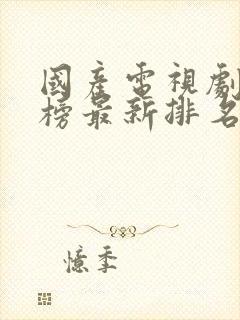 國產電視劇
榜最新排名
憶季